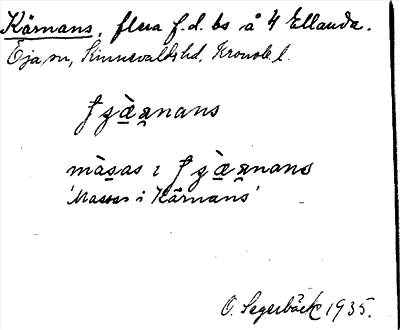 Kärnans, flera f.d. bs å 4 Ellanda.
Öja sn, Kinnevalds hd, Kronob. l.
màsas ı
'Masses i Kärnans'
O. Segerbäck 1935.